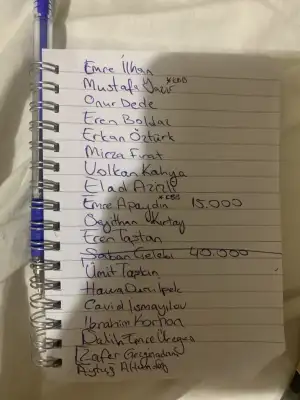 Emre İlhan
Mustafa Yazır *CBS
Onur Dede
Eren Boldaz
Erkan Öztürk
Mirza Fırat
Volkan Kahya
Elad Azizli
Emre Apaydın *CBS 15.000
Seyithan Kurtay
Eren Taştan
Şaban Çelebi 40.000
Ümit Tapkın
Hawa Duru İpek
Cavid İsmayılov
İbrahim Korhan
Emre
Zafer
Aytuğ Altundağ